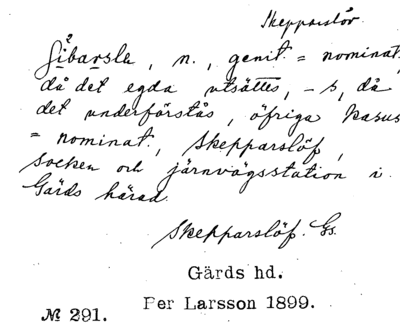 Skepparslöv
Šibarsla, n., genit. = nominat.
då det egda utsättes, -s, då
det underförstås, öfriga kasus
= nominat., Skepparslöf,
socken och järnvägsstation i
Gärds härad.
Skepparslöf. Gs.
Gärds hd.
Per Larsson 1899.
№ 291.